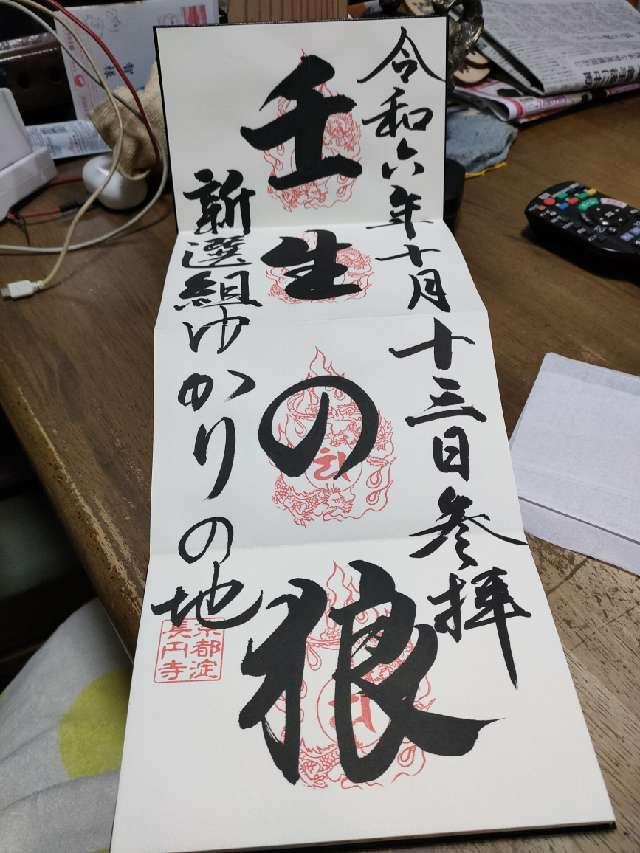 令和六年十月十三日参拝
壬生の狼
新選組ゆかりの地
京都淀
長円寺